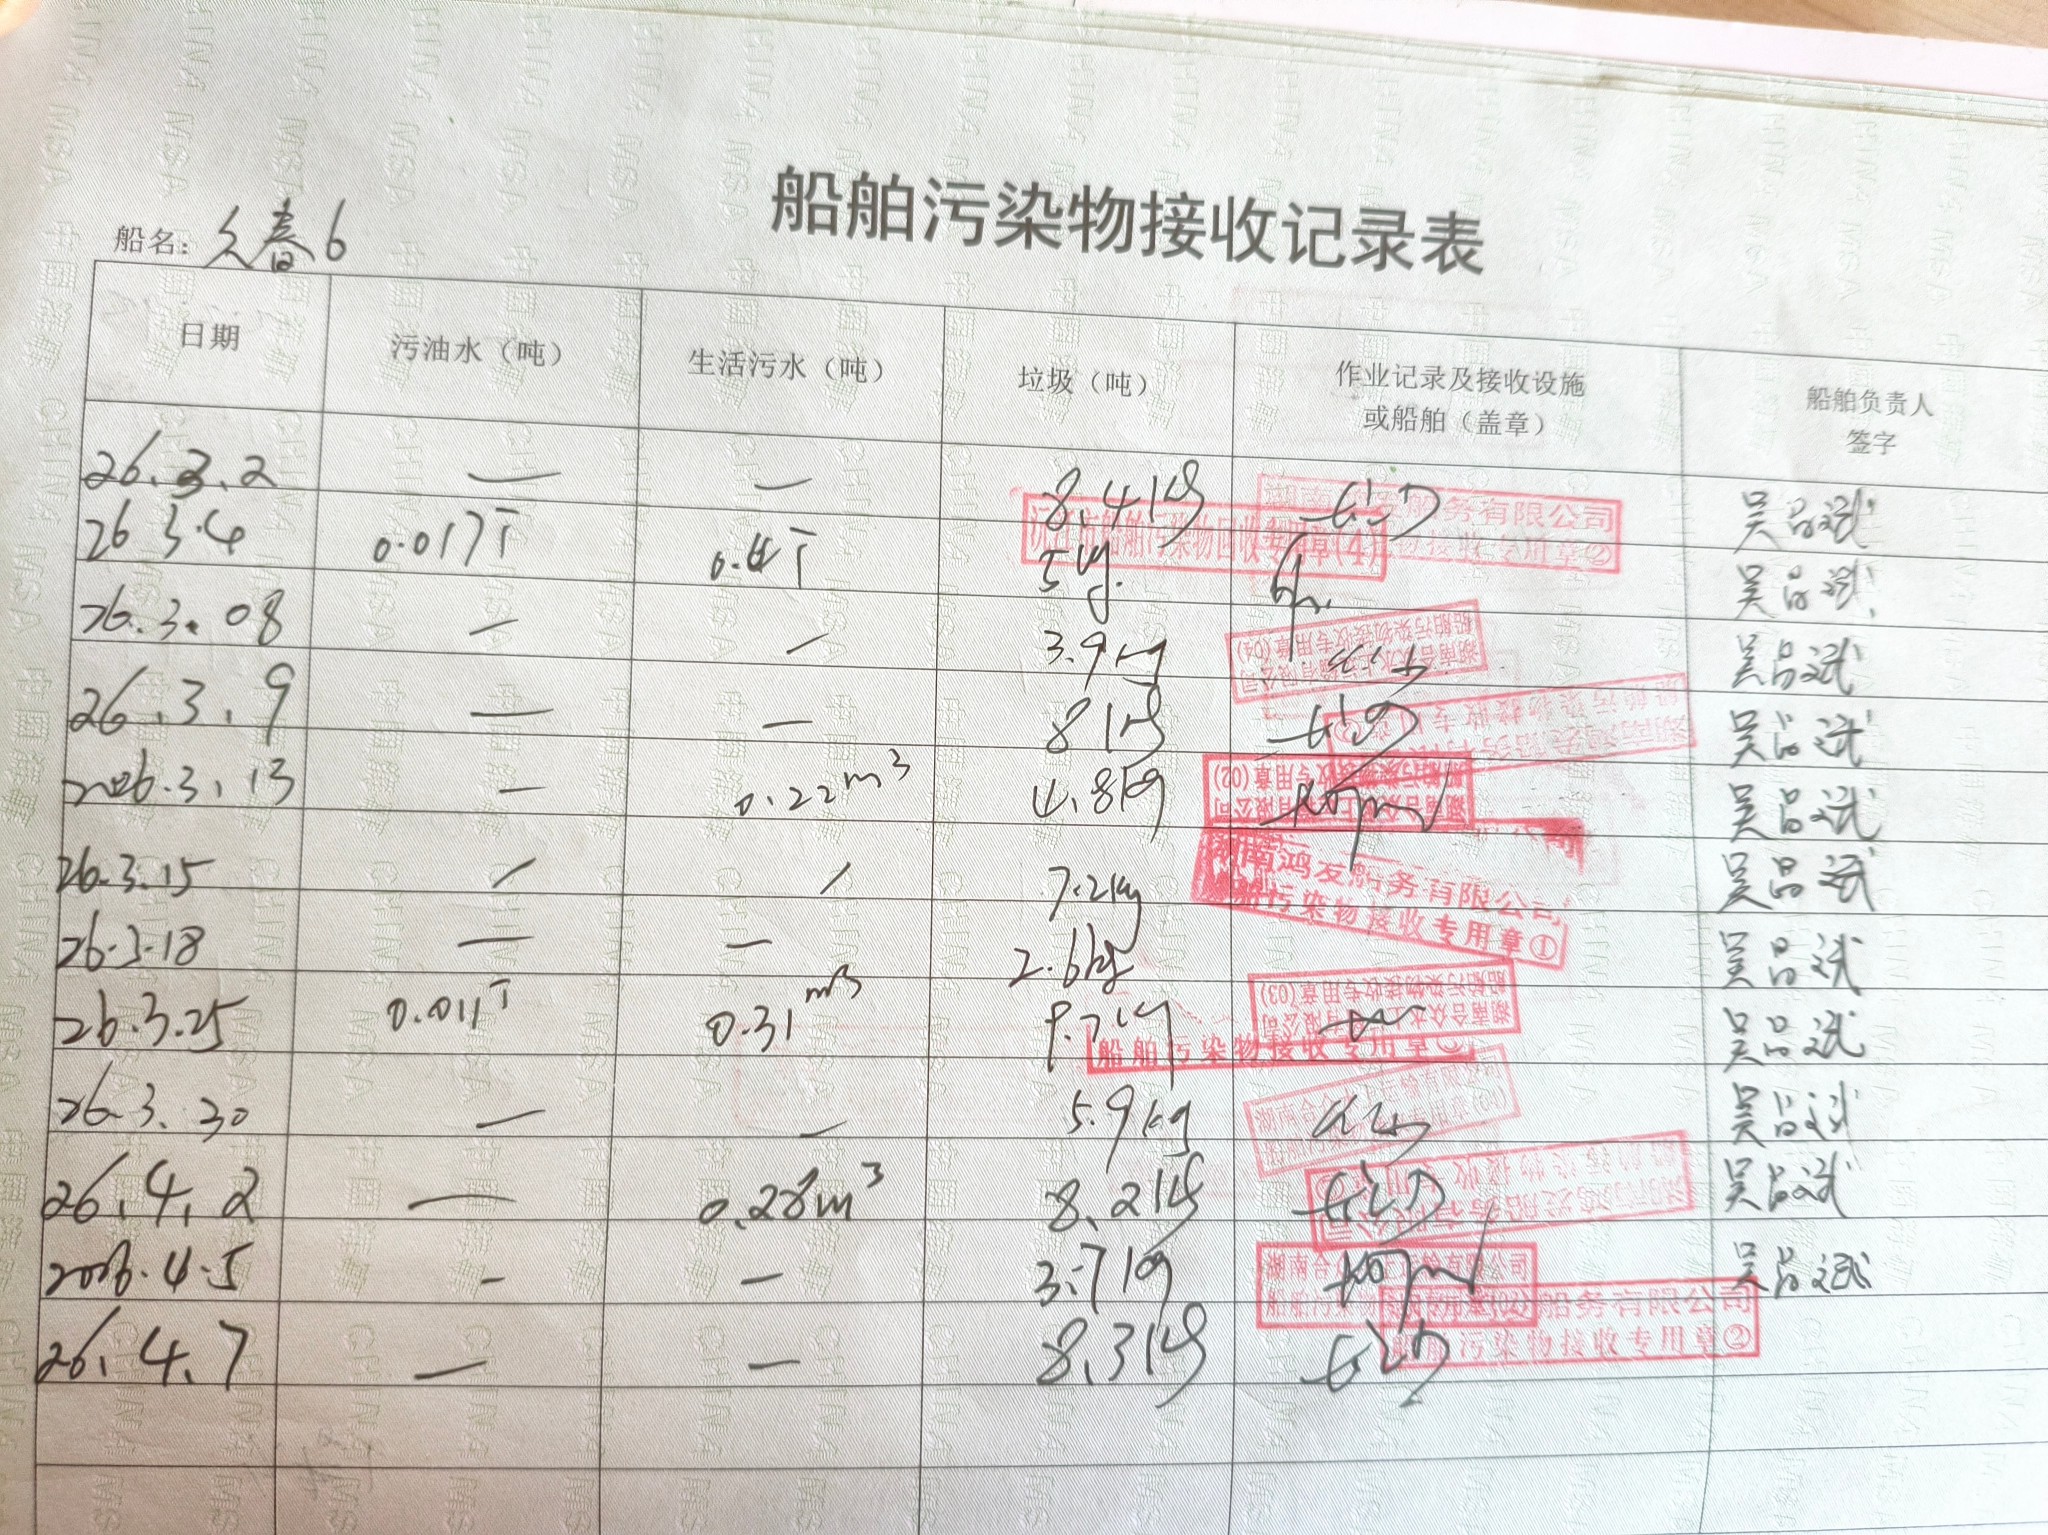 船舶污染物接收记录表
船名：久春6
日期 污油水（吨） 生活污水（吨） 垃圾（吨） 作业记录及接收设施或船舶（盖章） 船舶负责人签字
26.3.2 — — 8.4kg 吴品斌
26 3.4 0.017T 5kg. 吴品斌
26.3.08 — — 3.9kg 吴品斌
26.3.9 — — 8kg 吴品斌
2026.3.13 — 0.22m³ 4.8kg 吴品斌
26.3.15 / / 7.2kg 吴品斌
26.3.18 — — 2.6kg 吴品斌
26.3.25 0.011T 0.31m³ 吴品斌
26.3.30 — — 5.9kg 吴品斌
26.4.2 — 0.28m³ 8.2kg 吴品斌
2026.4.5 — — 3.7kg 吴品斌
26.4.7 — — 8.3kg
船务有限公司
沅江市船舶污染物回收专用章(4)
船舶污染物接收专用章(04)
湖南鸿发船务有限公司
船舶污染物接收专用章①
船舶污染物接收专用章(03)
船舶污染物接收专用章
船务有限公司
船舶污染物接收专用章②